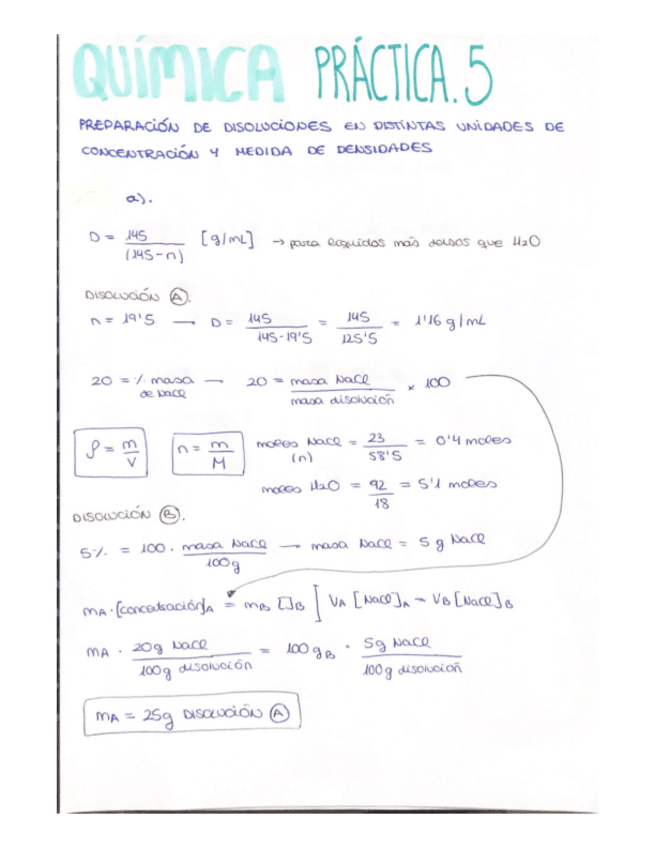 QUÍMICA PRÁCTICA.5
PREPARACIÓN DE DISOLUCIONES EN DISTINTAS UNIDADES DE
CONCENTRACIÓN Y MEDIDA DE DENSIDADES
a).
D = 145 / (145-n) [g/mL] → para líquidos más densos que H2O
DISOLUCIÓN Ⓐ.
n = 19'5 — D = 145 / 145-19'5 = 145 / 125'5 = 1'16 g/mL
20 = % masa de NaCl — 20 = masa NaCl / masa disolución × 100
ρ = m / V
n = m / M
moles NaCl (n) = 23 / 58'5 = 0'4 moles
moles H2O = 92 / 18 = 5'1 moles
DISOLUCIÓN Ⓑ.
5% = 100 · masa NaCl / 100g — masa NaCl = 5 g NaCl
mA · [concentración]A = mB []B ] VA [NaCl]A = VB [NaCl]B
mA · 20g NaCl / 100g disolución = 100 gB · 5g NaCl / 100g disolución
mA = 25g DISOLUCIÓN Ⓐ